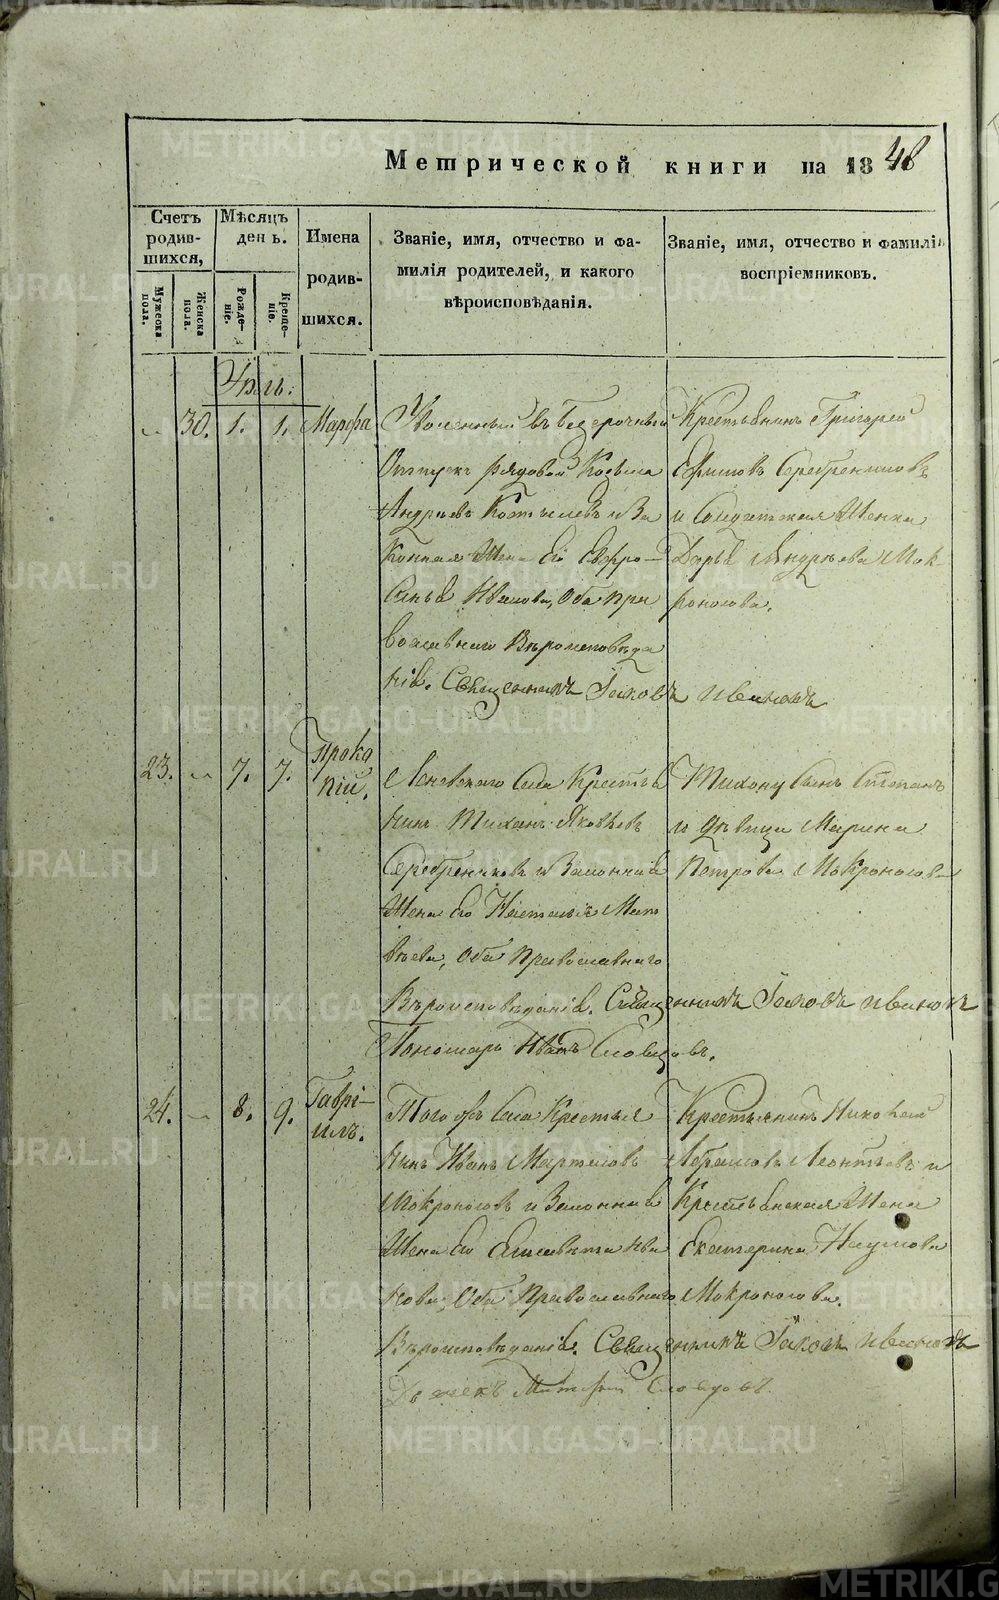 Метрической книги на 1848
Счетъ родив-шихся,
Мужеска пола.
Женска пола.
Мѣсяцъ день.
Рожде-ніе.
Креще-ніе.
Имена
родив-
шихся.
Званіе, имя, отчество и фа-
милія родителей, и какого
вѣроисповѣданія.
Званіе, имя, отчество и фамилія
воспріемниковъ.
Іюль.
30. 1. 1. Марфа
Уволенный въ безсрочный
Отпускъ рядовой Козьма
Андреевъ Костылевъ и За
конная Жена Его Евфро-
синья Иванова, Оба пра
вославнаго Вѣроисповѣда
нія. Священникъ Іаковъ Ивановъ
Крестьянинъ Григорей
Ефимовъ Серебрениковъ
и Солдатская Женка
Дарья Андреева Мок-
роносова.
23. 7. 7. Проко
пій.
Леневского Села Крестья
нинъ Тихонъ Яковлевъ
Серебрениковъ и Законная
Жена Его Наталья Мат
вѣева, Оба Православнаго
Вѣроисповѣданія. Священникъ Іаковъ Ивановъ
Пономарь Иванъ Словцовъ.
Тихону Сынъ Степанъ
и дѣвица Марина
Петрова Мокроносова
24. 8. 9. Гаврі-
илъ.
Того жъ Села Крестья
нинъ Иванъ
Мокроносовъ и Законная
Жена Его Елисавета Ива
нова, Оба Православнаго
Вѣроисповѣданія. Священникъ Іаковъ Ивановъ
Дьячекъ Словцовъ
Крестьянинъ Николай
Абрамовъ Леонтьевъ и
Крестьянская Жена
Екатерина Наумова
Мокроносова.
METRIKI.GASO-URAL.RU